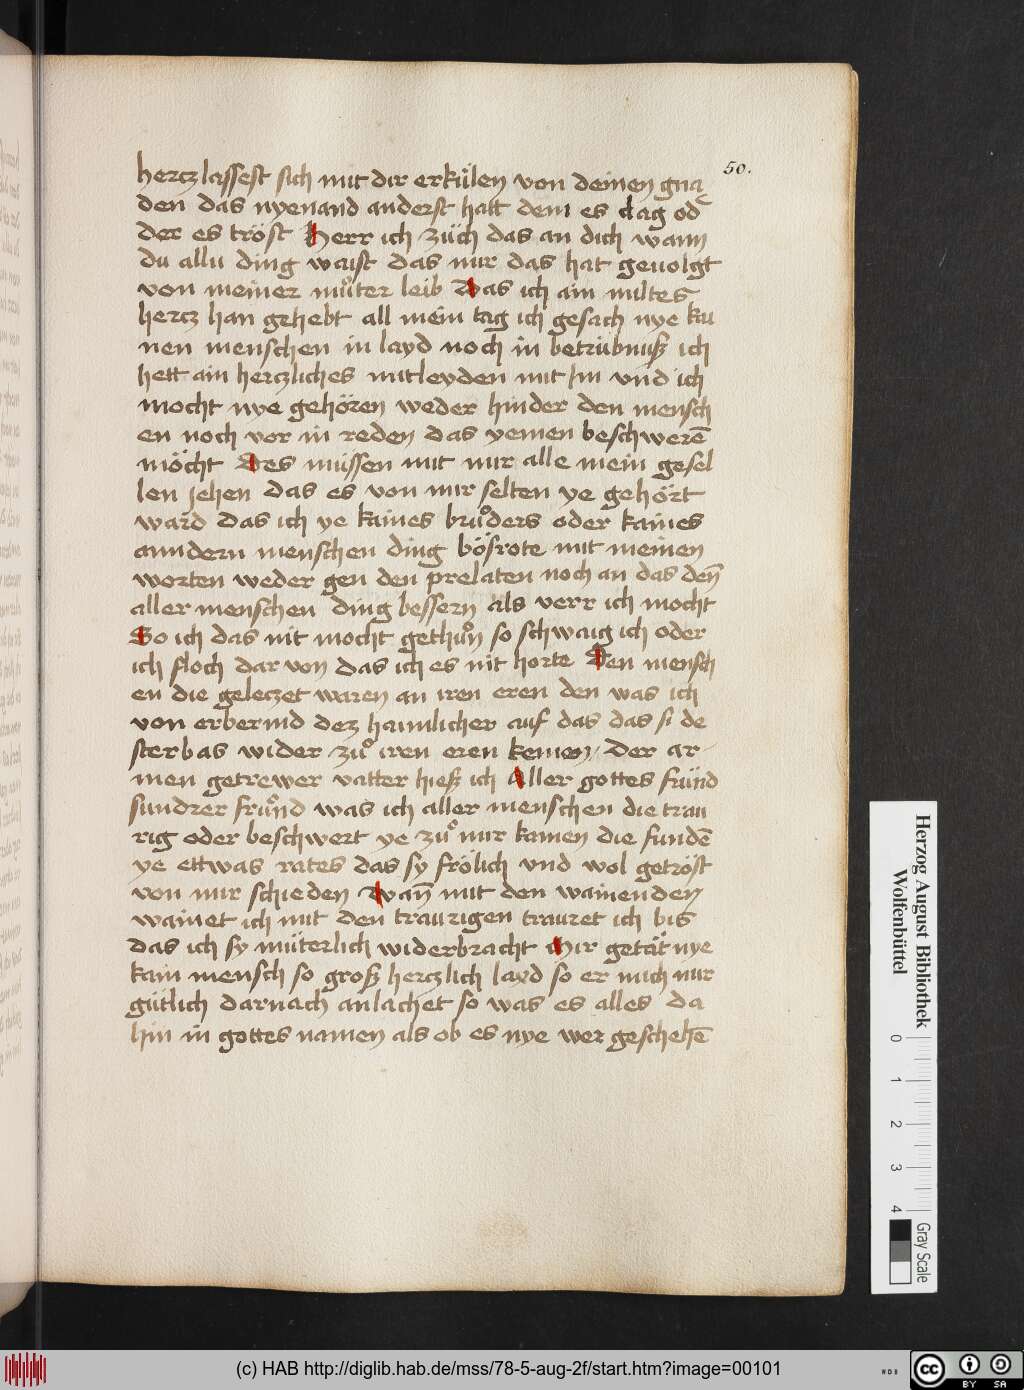 50.
hercz lassest sich mit dir erkülen von deinen gna
den das nyemand anderst hatt dem es clag od
der es tröst Herr ich züch das an dich wann
du allu ding waist das mir das hat geuolgt
von meiner můter leib Das ich ain miltes
hercz han gehebt all mein tag ich gesach nye kai
nen menschen in layd noch in betrübnuß ich
hett ain hercliches mitleyden mit Im vnd ich
mocht nye gehören weder hinder den mensch
en noch vor in reden das yemen beschwerē
möcht Des müssen mit mir alle mein gesel
len jehen das es von mir selten ye gehört
ward das ich ye kaines brůders oder kaines
anndern menschen ding bösrote mit meinen
worten weder gen den prelaten noch an das den̄
aller menschen ding bessern als verr ich mocht
So ich das nit mocht gethůn so schwaig ich oder
ich floch dar von das ich es nit horte Den mensch
en die geleczet waren an iren eren den was ich
von erbermd dez haimlicher auf das das si de
sterbas wider zů iren eren kemen / Der ar
men getrewer vatter hieß ich Aller gottes fründ
sundrer frůnd was ich aller menschen die trau
rig oder beschwert ye zů mir kamen die fundē
ye ettwas rates das sy frölich vnd wol getröst
von mir schieden Wan̄ mit den wainenden
wainet ich mit den traurigen trauret ich bis
das ich sy müterlich widerbracht Mir getät nye
kain mensch so groß herczlich layd so er mich nur
gütlich darnach anlachet so was es alles da
hin in gottes namen als ob es nye wer geschehē
Herzog August Bibliothek
Wolfenbüttel
0
1
2
3
4
Gray Scale
(c) HAB http://diglib.hab.de/mss/78-5-aug-2f/start.htm?image=00101
cc
BY SA